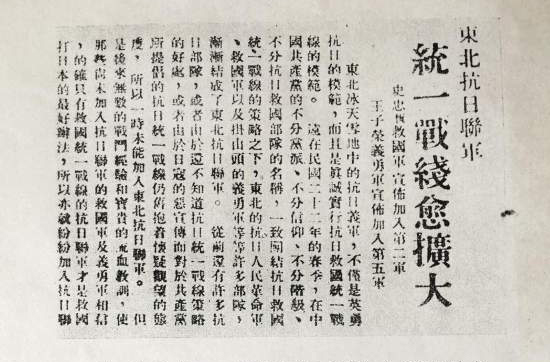 東北抗日聯軍
統一戰綫愈擴大
史忠恆救國軍宣佈加入第二軍
王子榮義勇軍宣佈加入第五軍
東北冰天雪地中的抗日義軍，不僅是英勇
抗日的模範，而且是眞誠實行抗日救國統一戰
線的模範。遠在民國二十二年的春季，在中
國共產黨的不分黨派、不分信仰、不分階級、
不分抗日救國部隊的名稱，一致團結抗日救國
統一戰線的策略之下，東北的抗日人民革命軍
、救國軍以及掛山頭的義勇軍等等許多部隊，
漸漸結成了東北抗日聯軍。從前還有許多抗
日部隊，或者由於還不知道抗日統一戰線策略
的好處，或者由於日寇的惡宣傳而對於共產黨
所提倡的抗日統一戰線仍舊抱着懷疑觀望的態
度，所以一時未能加入東北抗日聯軍。但
是後來無數的戰鬥經驗和寶貴的流血教訓，使
那些尚未加入抗日聯軍的救國軍及義勇軍相信
，的確只有救國統一戰線的抗日聯軍才是救國
打日本的最好辦法，所以亦就紛紛加入抗日聯